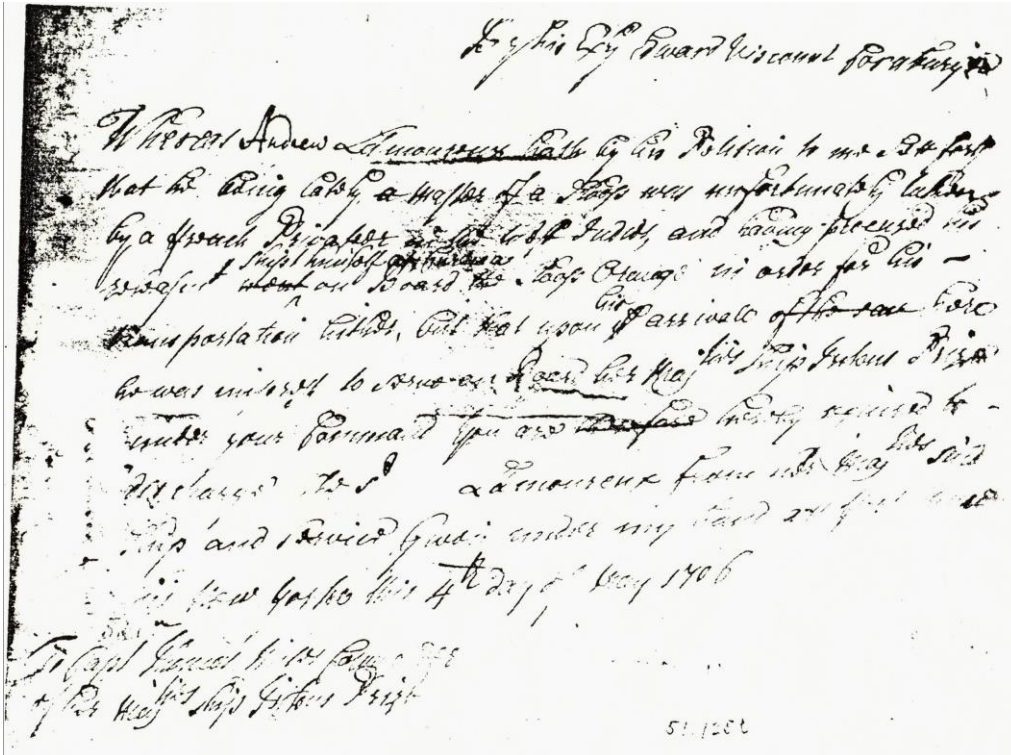 By his Exy Edward Viscount Cornbury &c
Whereas Andrew Lamoureux hath by his Petition to me Set forth
that he being lately a master of a Sloop was unfortunately taken
by a french Privateer in the west Indies, and having procured his
shipt himself
releasmt went on Board the Sloop Orange in order for his –
his
transportation hither, but that upon arrivall of the same here
he was imprest to serve on Board her Majties Ship Tritons Prize
under your Command You are therefore hereby required to –
discharge the sd Lamoureux from her Majties said
Ship and service Given under my hand at fort Anne
in New Yorke this 4th day of May 1706
To Capt Miles Commander
of her Majties Ship Tritons Prize